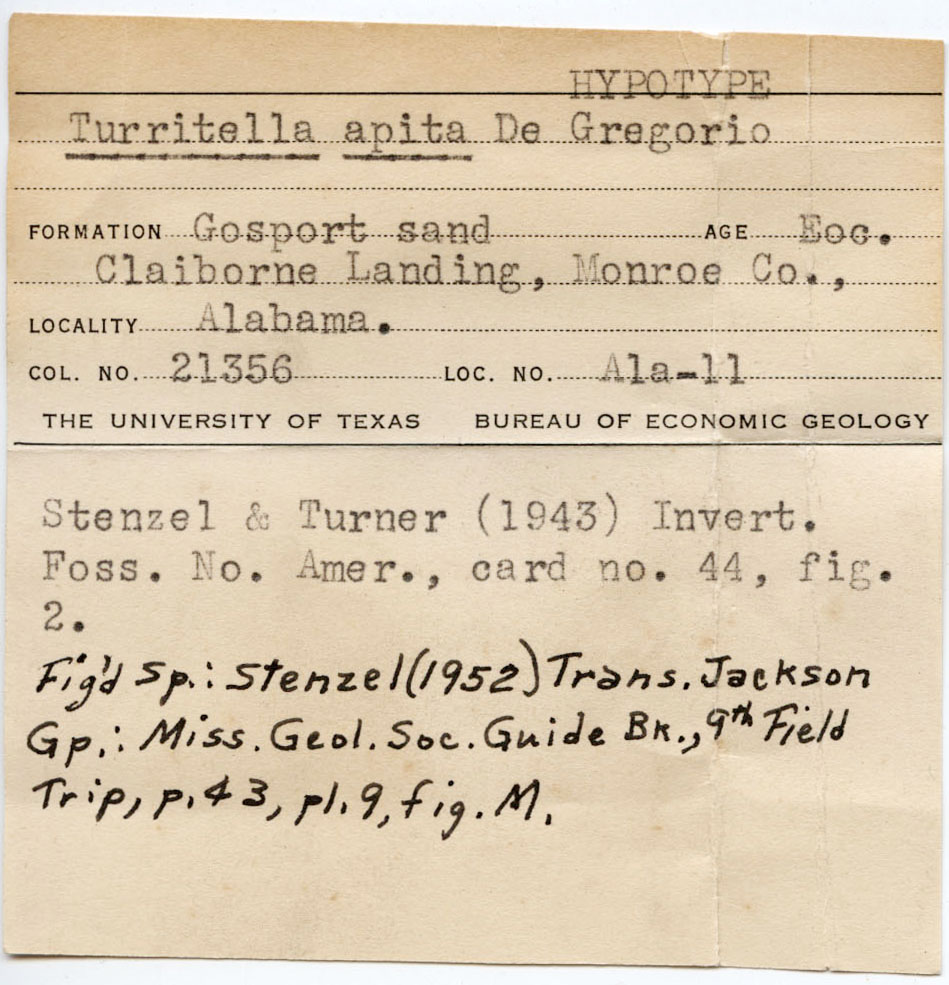 HYPOTYPE
Turritella apita De Gregorio
FORMATION Gosport sand AGE Eoc.
Claiborne Landing, Monroe Co.,
LOCALITY Alabama.
COL. NO. 21356 LOC. NO. Ala-11
THE UNIVERSITY OF TEXAS BUREAU OF ECONOMIC GEOLOGY
Stenzel & Turner (1943) Invert.
Foss. No. Amer., card no. 44, fig.
2.
Fig'd Sp.: Stenzel (1952) Trans. Jackson
Gp.: Miss. Geol. Soc. Guide Bk., 9th Field
Trip, p. 43, pl. 9, fig. M.